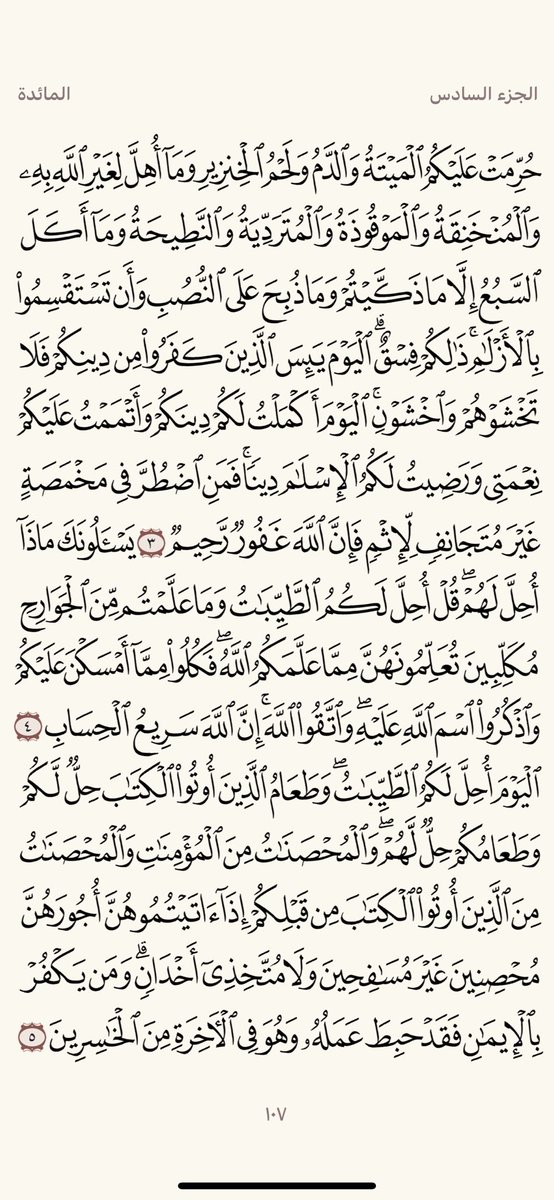 الجزء السادس
المائدة
حُرِّمَتْ عَلَيْكُمُ ٱلْمَيْتَةُ وَٱلدَّمُ وَلَحْمُ ٱلْخِنزِيرِ وَمَآ أُهِلَّ لِغَيْرِ ٱللَّهِ بِهِۦ
وَٱلْمُنْخَنِقَةُ وَٱلْمَوْقُوذَةُ وَٱلْمُتَرَدِّيَةُ وَٱلنَّطِيحَةُ وَمَآ أَكَلَ
ٱلسَّبُعُ إِلَّا مَا ذَكَّيْتُمْ وَمَا ذُبِحَ عَلَى ٱلنُّصُبِ وَأَن تَسْتَقْسِمُوا۟
بِٱلْأَزْلَٰمِۚ ذَٰلِكُمْ فِسْقٌۗ ٱلْيَوْمَ يَئِسَ ٱلَّذِينَ كَفَرُوا۟ مِن دِينِكُمْ فَلَا
تَخْشَوْهُمْ وَٱخْشَوْنِۚ ٱلْيَوْمَ أَكْمَلْتُ لَكُمْ دِينَكُمْ وَأَتْمَمْتُ عَلَيْكُمْ
نِعْمَتِى وَرَضِيتُ لَكُمُ ٱلْإِسْلَٰمَ دِينًاۚ فَمَنِ ٱضْطُرَّ فِى مَخْمَصَةٍ
غَيْرَ مُتَجَانِفٍ لِّإِثْمٍ فَإِنَّ ٱللَّهَ غَفُورٌ رَّحِيمٌ ٣ يَسْـَٔلُونَكَ مَاذَآ
أُحِلَّ لَهُمْۖ قُلْ أُحِلَّ لَكُمُ ٱلطَّيِّبَٰتُ وَمَا عَلَّمْتُم مِّنَ ٱلْجَوَارِحِ
مُكَلِّبِينَ تُعَلِّمُونَهُنَّ مِمَّا عَلَّمَكُمُ ٱللَّهُۖ فَكُلُوا۟ مِمَّآ أَمْسَكْنَ عَلَيْكُمْ
وَٱذْكُرُوا۟ ٱسْمَ ٱللَّهِ عَلَيْهِۖ وَٱتَّقُوا۟ ٱللَّهَۚ إِنَّ ٱللَّهَ سَرِيعُ ٱلْحِسَابِ ٤
ٱلْيَوْمَ أُحِلَّ لَكُمُ ٱلطَّيِّبَٰتُۖ وَطَعَامُ ٱلَّذِينَ أُوتُوا۟ ٱلْكِتَٰبَ حِلٌّ لَّكُمْ
وَطَعَامُكُمْ حِلٌّ لَّهُمْۖ وَٱلْمُحْصَنَٰتُ مِنَ ٱلْمُؤْمِنَٰتِ وَٱلْمُحْصَنَٰتُ
مِنَ ٱلَّذِينَ أُوتُوا۟ ٱلْكِتَٰبَ مِن قَبْلِكُمْ إِذَآ ءَاتَيْتُمُوهُنَّ أُجُورَهُنَّ
مُحْصِنِينَ غَيْرَ مُسَٰفِحِينَ وَلَا مُتَّخِذِىٓ أَخْدَانٍۗ وَمَن يَكْفُرْ
بِٱلْإِيمَٰنِ فَقَدْ حَبِطَ عَمَلُهُۥ وَهُوَ فِى ٱلْـَٔاخِرَةِ مِنَ ٱلْخَٰسِرِينَ ٥
١٠٧